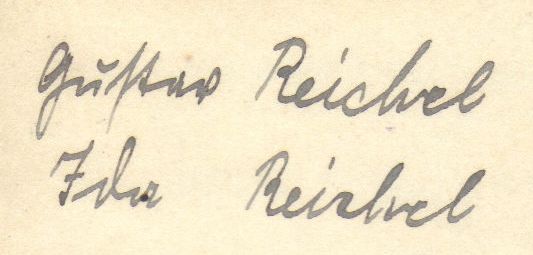 Gustav Reichel
Ida Reichel